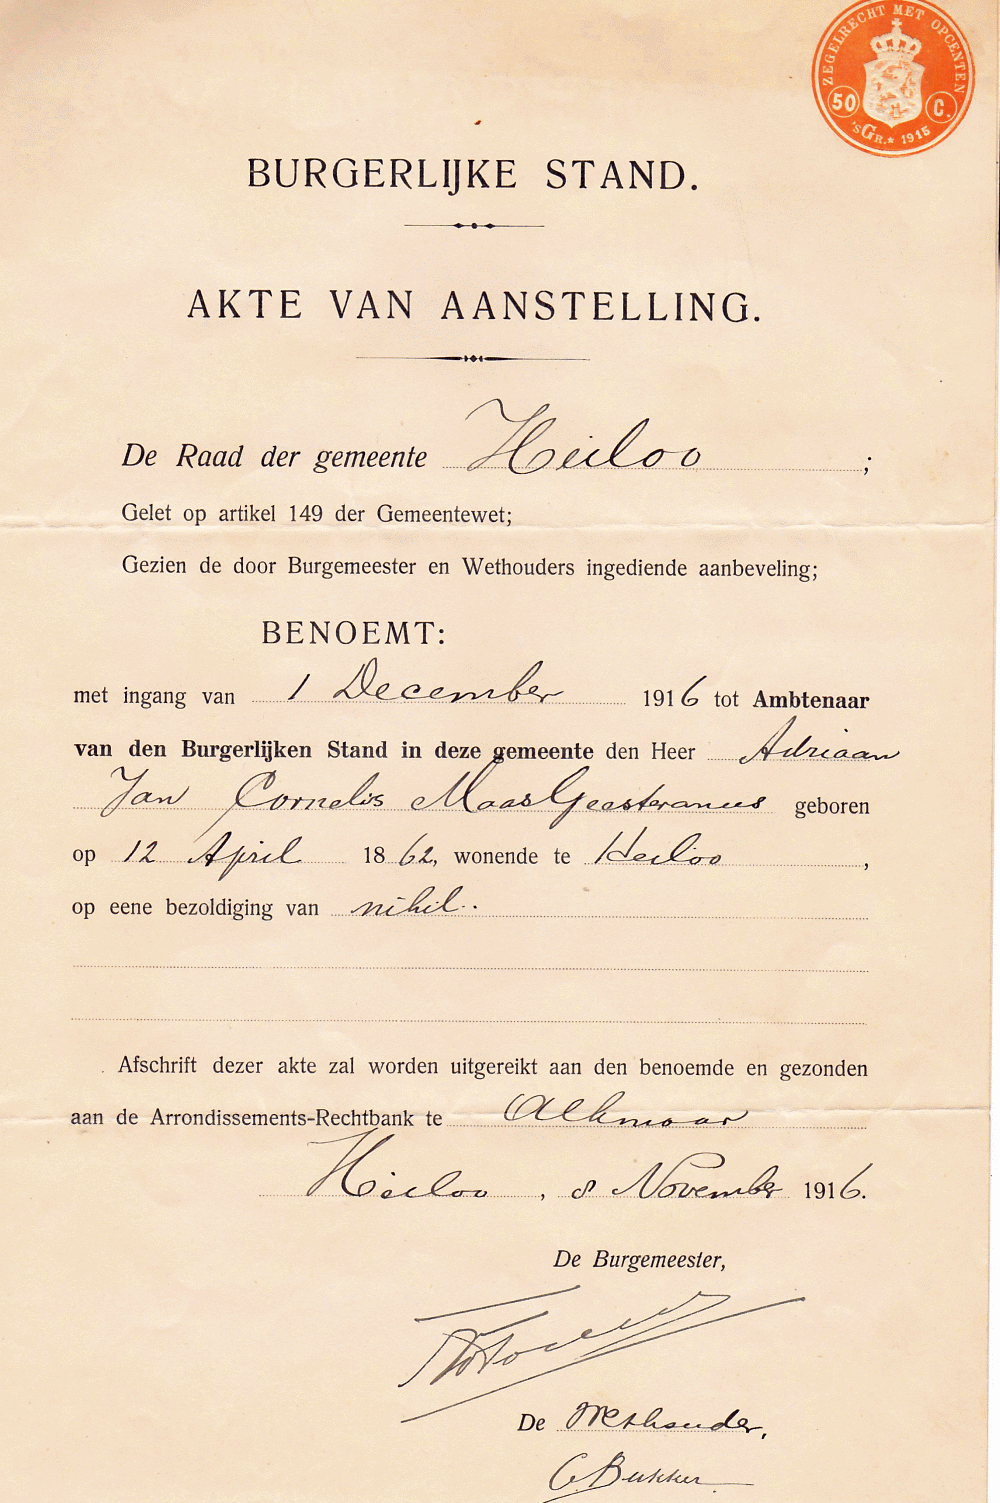 ZEGELRECHT MET OPCENTEN
50 C.
'sGr.* 1915
BURGERLIJKE STAND.
AKTE VAN AANSTELLING.
De Raad der gemeente Heiloo ;
Gelet op artikel 149 der Gemeentewet;
Gezien de door Burgemeester en Wethouders ingediende aanbeveling;
BENOEMT:
met ingang van 1 December 1916 tot Ambtenaar
van den Burgerlijken Stand in deze gemeente den Heer Adriaan
Jan Cornelis Maas Geesteranus geboren
op 12 April 1862, wonende te Heiloo ,
op eene bezoldiging van nihil.
Afschrift dezer akte zal worden uitgereikt aan den benoemde en gezonden
aan de Arrondissements-Rechtbank te Alkmaar
Heiloo , 8 November 1916.
De Burgemeester,
De Wethouder,
C. Bukker